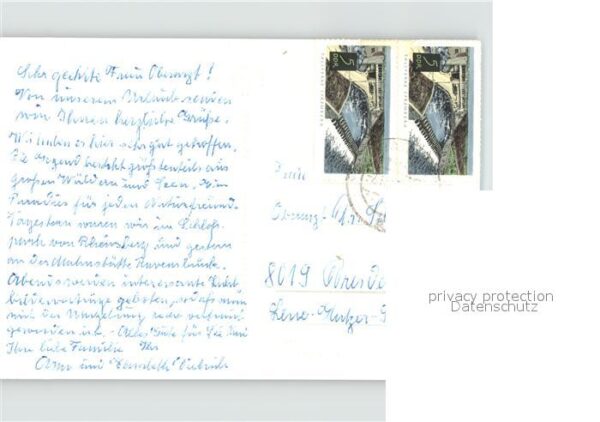 Sehr geehrte Frau Oberarzt!
Von unserem Urlaub senden
wir Ihnen herzliche Grüße.
Wir haben es hier sehr gut getroffen.
Die Gegend besteht größtenteils aus
großen Wäldern und Seen. Ein
Paradies für jeden Naturfreund.
Vorgestern waren wir im Schloß-
park von Rheinsberg und gestern
an der Mahnstätte Ravensbrück.
Abends werden interessante Licht-
bildervorträge geboten, so daß man
mit der Umgebung sehr vertraut
geworden ist. - Alles Gute für Sie und
Ihre liebe Familie Ihr
und
Frau
Oberarzt
8019 Dresden
5
DDR
5
DDR
privacy protection
Datenschutz